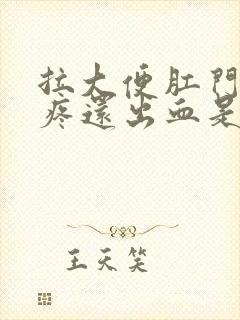 拉大便肛門
疼還出血是
王天笑